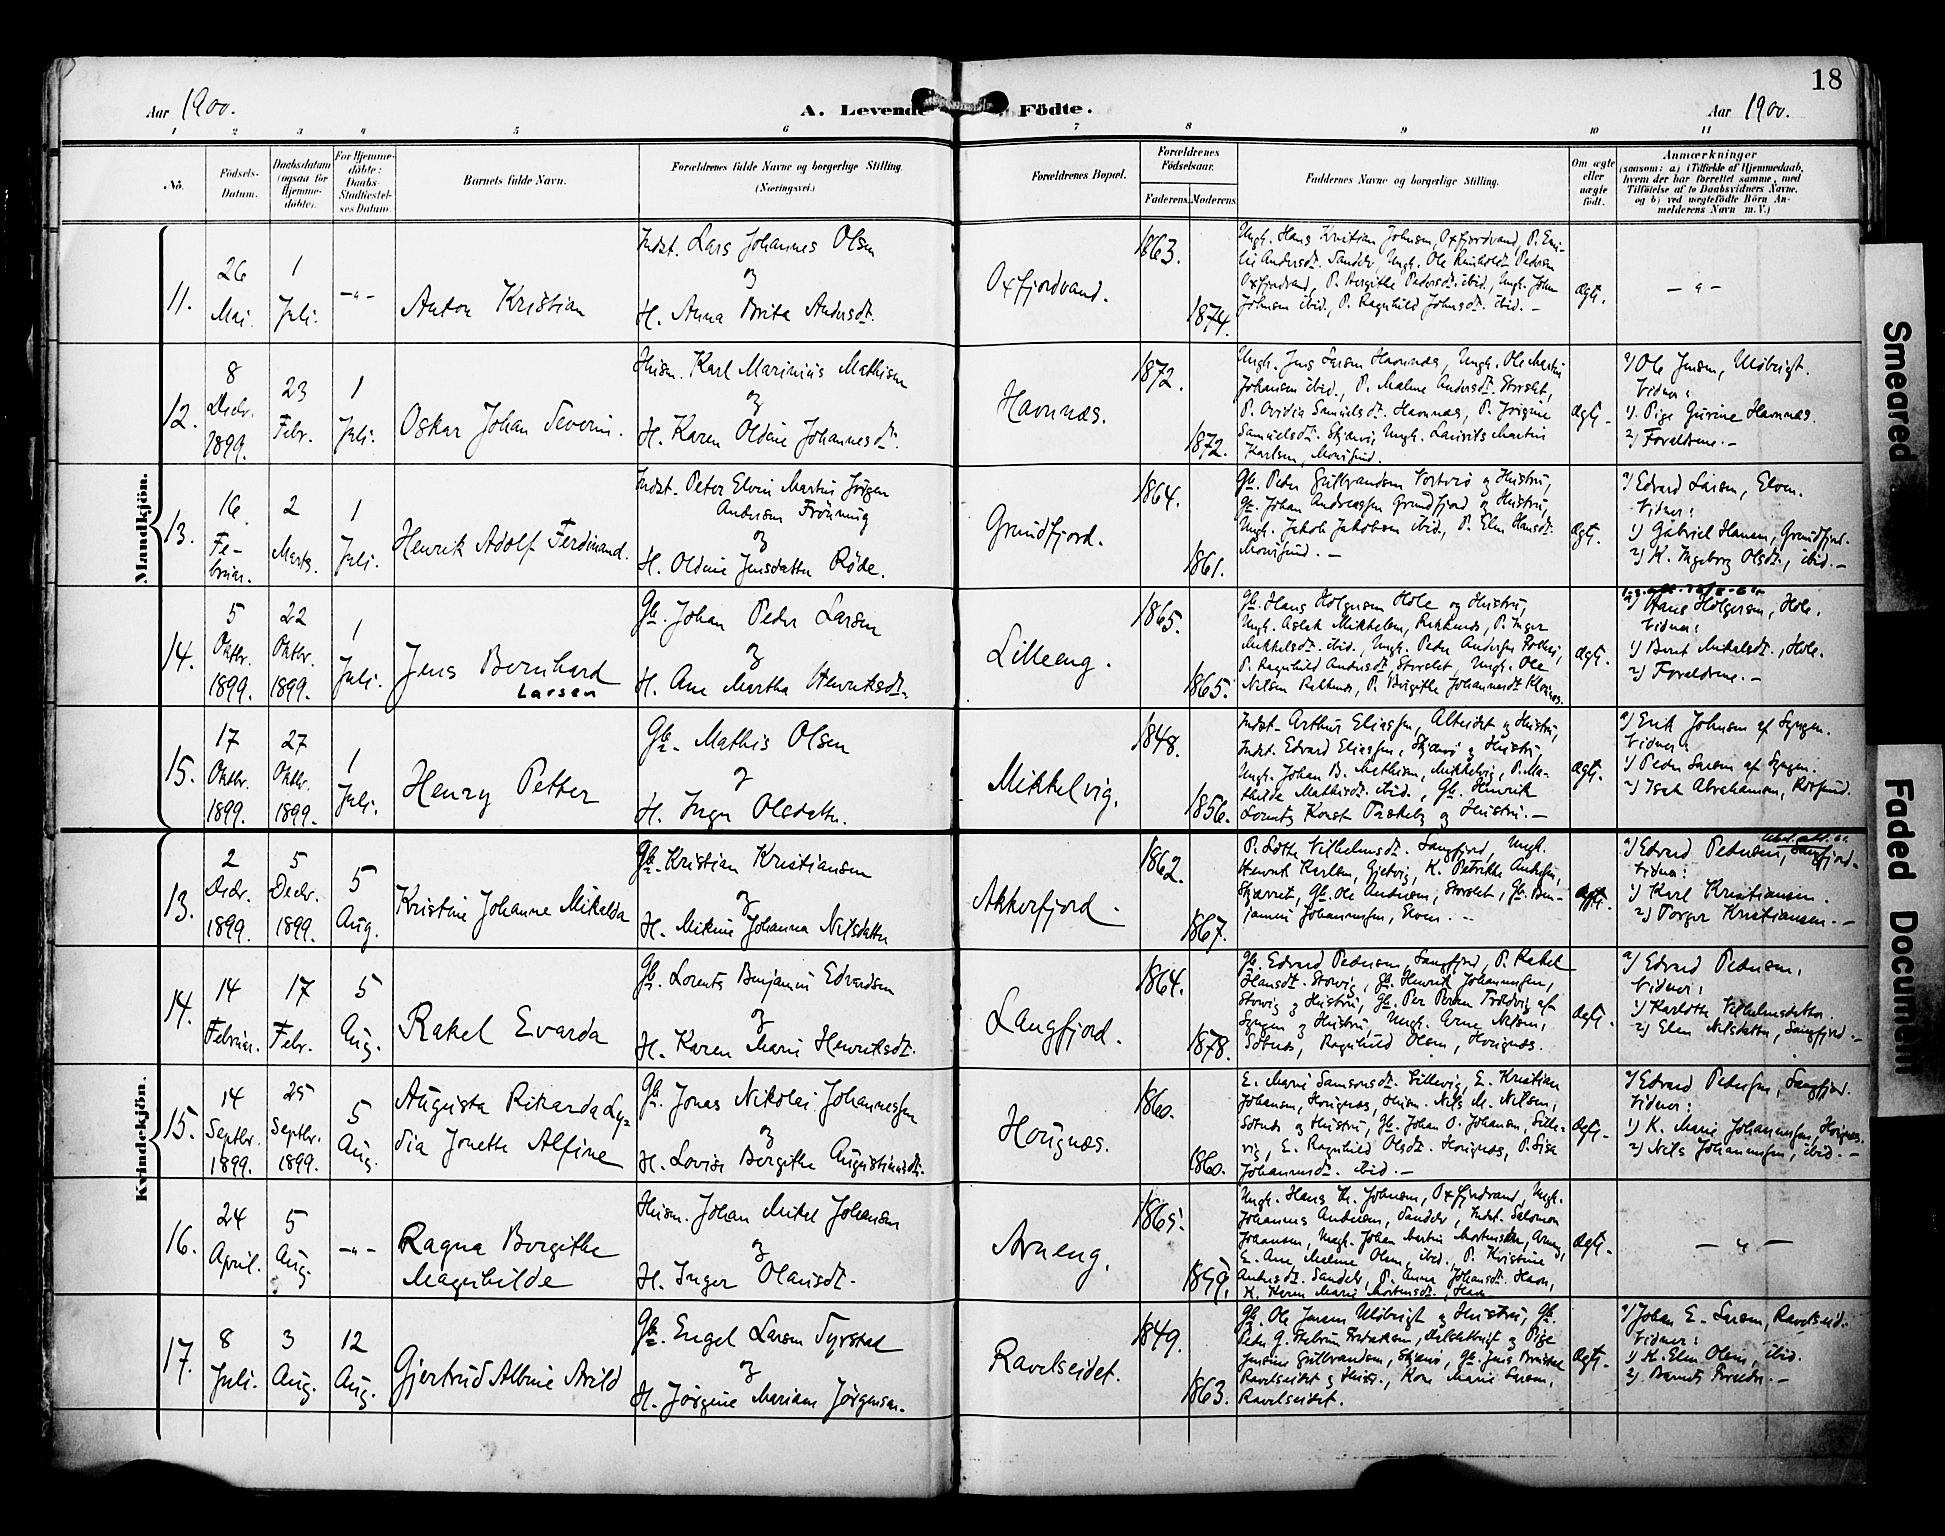 18
Aar 1900.
A. Levende Födte.
Aar 1900.
1 2 3 4 5 6 7 8 9 10 11
No.
Födsels-
Datum.
Daabsdatum
(ogsaa for
Hjemme-
döbte).
For Hjemme-
döbte:
Daabs-
Stadfæstel-
ses Datum
Barnets fulde Navn.
Forældrenes fulde Navne og borgerlige Stilling.
(Næringsvei.)
Forældrenes Bopæl.
Forældrenes
Födselsaar.
Faderens. Moderens.
Faddernes Navne og borgerlige Stilling.
Om ægte
eller
uægte
födt.
Anmærkninger
(saasom: a) i Tilfælde af Hjemmedaab,
hvem der har forrettet samme, med
Tilföielse af to Daabsvidners Navne,
og b) ved uægtefödte Börn An-
melderens Navn m. V.)
Mandkjön.
11.
26
Mai.
1
Juli.
-"-
Anton Kristian
Indst. Lars Johannes Olsen
og
H. Anna Brita Andersdt.
Oxfjordvand.
1863.
1874.
Ungk. Hans Kristian Johnsen, Oxfjordvand, P. Emi-
lie Andersdt. Sandør, Ungk. Ole Reinholdt Pedersen
Oxfjordvand, P. Bergithe Pedersdt. ibid., Ungk. John
Johnsen ibid., P. Ragnhild Johnsdt. ibid. -
Ægte.
- " -
12.
8
Decbr.
1899.
23
Febr.
1
Juli.
Oskar Johan Severin.
Husm. Karl Marinius Mathisen
og
H. Karen Oldine Johannesdt.
Havnnæs.
1872.
1872.
Ungk. Jens Larsen Havnnæs, Ungk. Ole Martin
Johansen ibid., P. Malene Andersdt. Storslet,
P. Ovidia Samuelsdt. Havnnæs, P. Jørgine
Samuelsdt. Skjærvø, Ungk. Laurits Martin
Karlsen,
Ægte.
a) Ole Jensen,
Vidner:
1) Pige Gurine Havnnæs.
2) Forældrene. -
13.
16
Fe-
bruar.
2
Marts.
1
Juli.
Henrik Adolf Ferdinand.
Indst. Peter Elvin Martin Jørgen
Andersen Frönning
og
H. Oldine Jensdatter Röde.
Grundfjord.
1864.
1861.
Gb. Peder Gulbrandsen Vorterø og Hustru,
Gb. Johan Andreassen Grundfjord og Hustru,
Ungk. Jakob Jakobsen ibid., P. Elen Hansdt.
Ægte.
a) Edvard Larsen, Elven.
Vidner:
1) Gabriel Hansen, Grundfjord.
2) K. Ingeborg Olsdt., ibid. -
14.
5
Oktbr.
1899.
22
Oktbr.
1899.
1
Juli.
Jens Bernhard
Larsen
Gb. Johan Peder Larsen
og
H. Ane Martha Henriksdt.
Lilleeng.
1865.
1865.
Gb. Hans Holgersen Hole og Hustru,
Ungk. Aslak Mikkelsen, P. Inger
Mikkelsdt. ibid., Ungk. Peder Andersen
P. Ragnhild Andersdt. Storslet, Ungk. Ole
Nilsen P. Birgithe Johannesdt.
Ægte.
a) Hans Holgersen, Hole.
Vidner:
1) Berit Mikalsdt., Hole.
2) Forældrene. -
15.
17
Oktbr.
1899.
27
Oktbr.
1899.
1
Juli.
Henry Petter
Gb. Mathis Olsen
og
H. Inger Olsdatter.
Mikkelvig.
1848.
1856.
Indst. Arthur Eliassen, Alteidet og Hustru,
Indst. Edvard Eliassen, Skjærvø og Hustru,
Ungk. Johan B. Mathisen, Mikkelvig, P. Ma-
thilde Mathisdt. ibid., Gb. Henrik
Lorentz og Hustru. -
Ægte.
a) Erik Johnsen af Lyngen.
Vidner:
1) Peder Larsen af Lyngen.
2) Isak Abrahamsen,
Kvindekjön.
13.
2
Decbr.
1899.
5
Decbr.
1899.
5
Aug.
Kristine Johanne Mikelda
Gb. Kristian Kristiansen
og
H. Mikine Johanna Nilsdatter
Akkarfjord.
1862.
1867.
P. Lotte Vilhelmsdt. Langfjord, Ungk.
Henrik Karlsen, K. Petrikke Andersen,
Gb. Ole Andersen, Storslet, Gb. Ben-
jamin Johannesen, Elven. -
Ægte.
a) Edvard Pedersen, Langfjord.
Vidner:
1) Karl Kristiansen.
2) Torger Kristiansen. -
14.
14
Februar.
17
Febr.
5
Aug.
Rakel Evarda
Gb. Lorents Benjamin Edvardsen
og
H. Karen Marie Henriksdt.
Langfjord.
1864.
1878.
Gb. Edvard Pedersen, Langfjord, P. Rakel
Hansdt. Storvig, Gb. Henrik Johannesen,
Storvig og Hustru, Gb. Per Persen af
Lyngen og Hustru, Ungk. Arne Nilsen,
Ragnhild Olsen,
Ægte.
a) Edvard Pedersen,
Vidner:
1) Karlotte Vilhelmsdatter.
2) Elen Nilsdatter, Langfjord. -
15.
14
Septbr.
1899.
25
Septbr.
1899.
5
Aug.
Augusta Rikarda Ly-
dia Jonette Alfine
Gb. Jonas Nikolai Johannessen
og
H. Lovise Bergithe Augustinusdt.
Hougnæs.
1860.
1860.
E. Marie Samsonsdt. Lillevig, E. Kristian
Johansen, Hougnæs, Husm. Nils M. Nilsen,
og Hustru, Gb. Johan O. Johansen, Lille-
vig, E. Ragnhild Olsdt. Hougnæs, P. Lisa
Johannesdt. ibid. -
Ægte.
a) Edvard Pedersen, Langfjord.
Vidner:
1) K. Marie Johannessen, Hougnæs.
2) Nils Johannessen, ibid. -
16.
24
April.
5
Aug.
-"-
Ragna Bergithe
Magnhilde
Husm. Johan Mikel Johansen
og
H. Inger Olausdt.
Arneng.
1865.
1859.
Ungk. Hans Kr. Johnsen, Oxfjordvand, Ungk.
Johannes Andersen, Sandør, Indst. Salomon
Johansen, Ungk. Johan Martin Mortensen, Arneng,
E. Ane Malene Olsen, ibid., P. Kristine
Andersdt. Sandør, P. Anna Johansdt. Havn,
K. Karen Marie Mortensdt., Havn
Ægte.
- " -
17.
8
Juli.
3
Aug.
12
Aug.
Gjertrud Albine Arild
Gb. Engel Larsen Tyrstad
og
H. Jørgine Mariane Jørgensen.
Ravelseidet.
1849.
1863.
Gb. Ole Jensen og Hustru, Gb.
Peder G. og Pige
Jensine Gulbrandsen, Skjærvø, Gb. Jens
Ravelseidet og Hustru, Kone Marie Larsen,
Ravelseidet.
Ægte.
a) Johan E. Larsen, Ravelseid.
Vidner:
1) K. Elen Olsen, ibid.
2) Barnets Forældre. -
Smeared
Faded Document